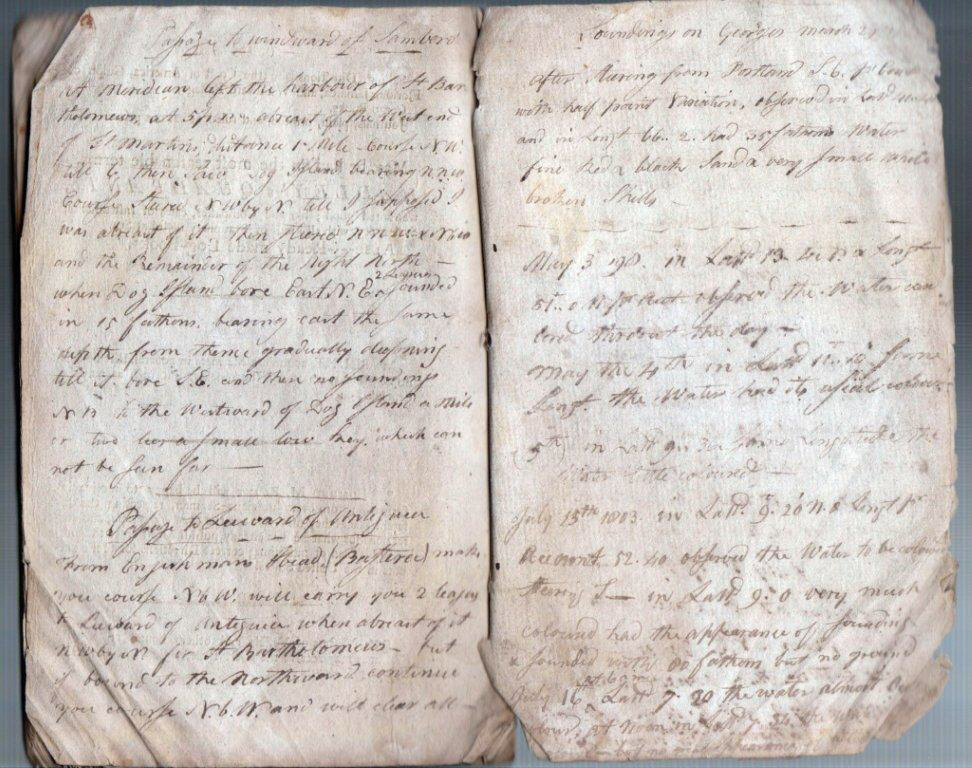 Passage to windward of Sambero
At Meridian left the harbour of St Bar
tholomews at 5 p.m. abreast of the West end
of St Martins, distance 1 Mile Course N.W.
till 6 then saw Dog Island bearing N N W
Course Stered N W by N. till I supposed I
was abreast of it then Stered N N W & N b W
and the Remainder of the Night North —
when Dog Island bore East N. E. 2 Leagues sounded
in 15 fathoms. bearing east the same
depth from thence gradually deepning
till it bore S.E. and then no soundings
N B to the Westward of Dog Island a Mile
or two lies a small low Key. which can
not be seen far —
Passage to Leeward of Antigua
From English mans Head (Basterre) make
you course N b W. will carry you 2 leagues
to Leeward of Antigua when abreast of it
N W by N for St Bartholomews — but
if bound to the Northward continue
you course N. b. W. and will clear all —
Soundings on Georges march 21
after Stering from Portland S. E. pr
with half point Variation, observed in Latd
and in Longt 66.. 2. had 35 fathoms Water
fine Red & black Sand & very small white
broken Shells
May 3 in Latd 13. & Longt
51.. 0 observed the Water
throout the day —
May the 4th in Latd Same
Longt. the Water had its usual colour
(5th) in Latd same Longitude the
Water little coloured —
July 15th 1803. in Latd. 9: 20 N. & Longt pr
Account 52. 40 observed the Water to be colourd
Steering S — in Latd 9: 0 very much
colourd had the appearance of sounding
& sounded with 80 fathom but no ground
July 16 at 6 am Latd 7. 20 the water almost
colour, at Noon in Latd
but no appearance